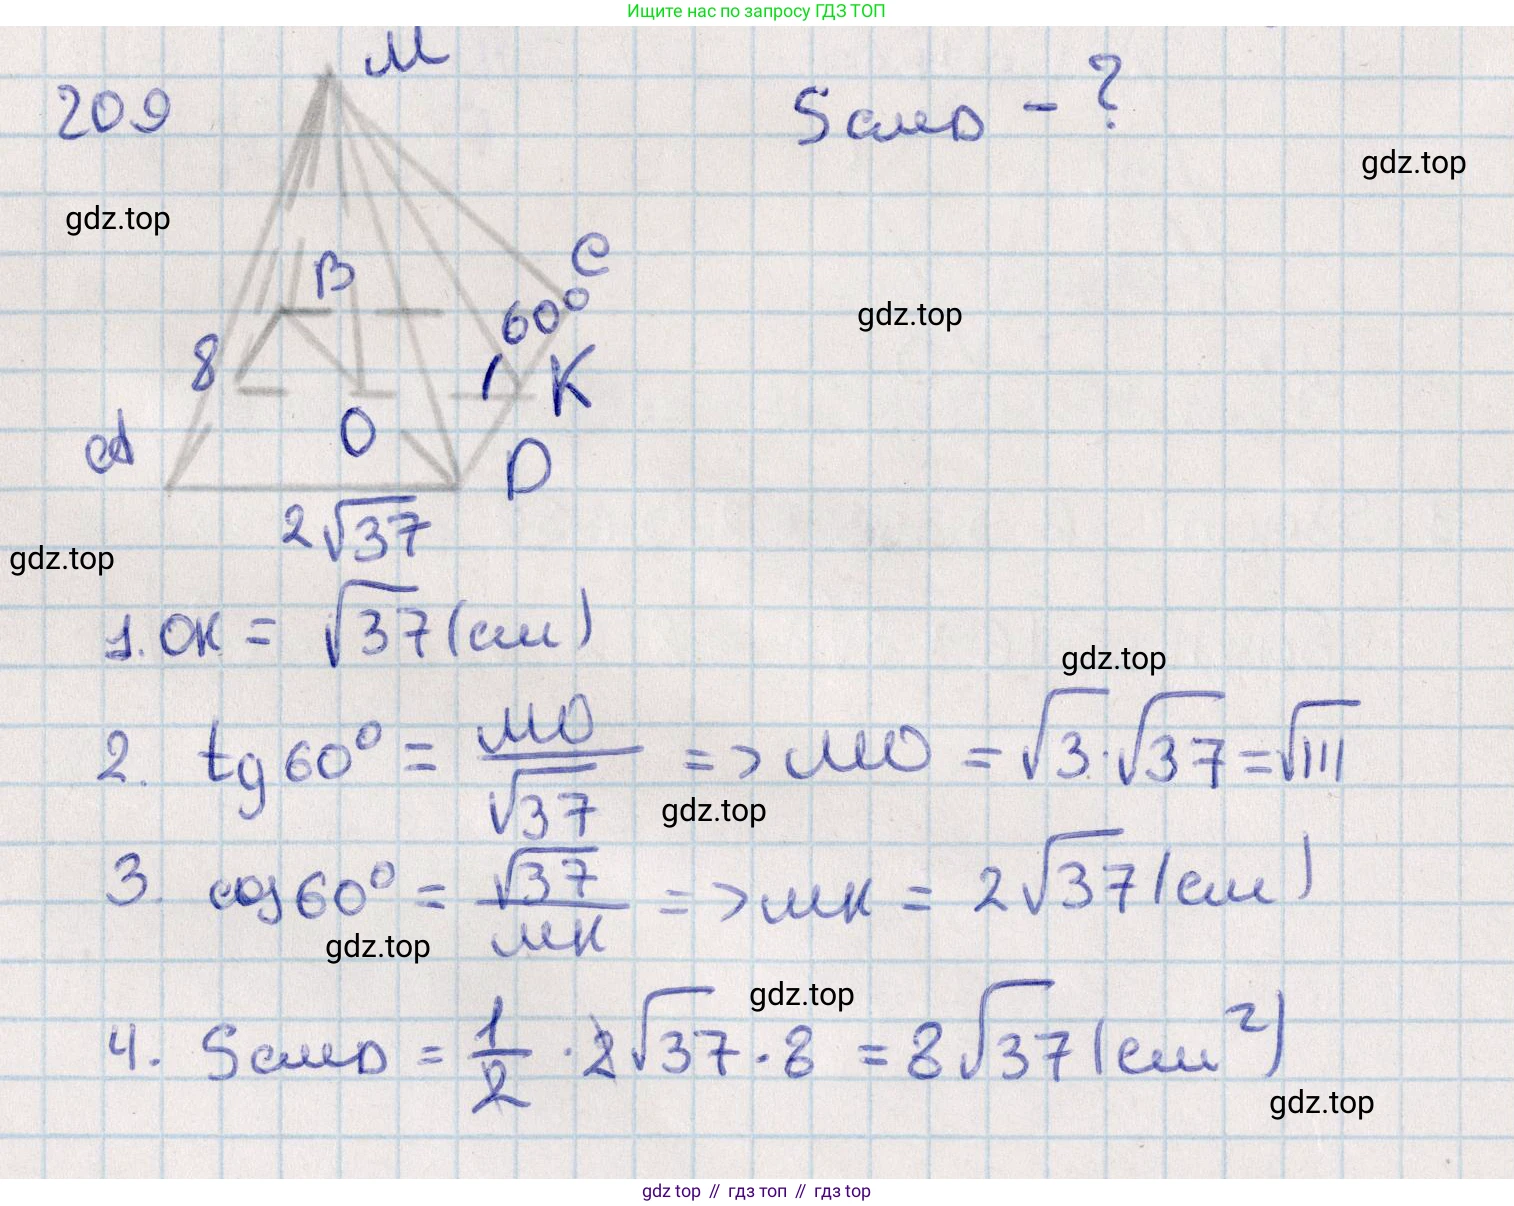 Ищите нас по запросу ГДЗ ТОП
M
209
S CMD - ?
gdz.top
gdz.top
B
C
60°
gdz.top
8
K
A
O
D
2√37
gdz.top
1. OK = √37 (см)
gdz.top
2. tg 60° = MO/√37 => MO = √3 · √37 = √111
gdz.top
3. cos 60° = √37/MK => MK = 2√37 (см)
gdz.top
gdz.top
4. S CMD = 1/2 · 2√37 · 8 = 8√37 (см²)
gdz.top
gdz top // гдз топ // gdz top